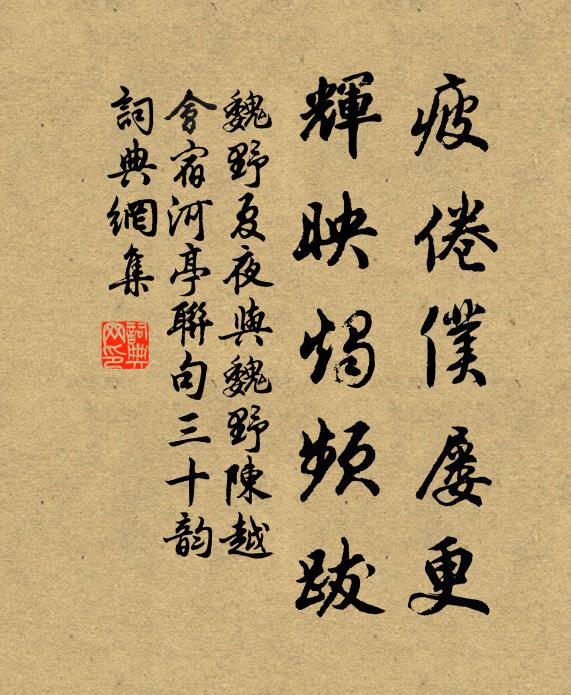 疲倦僕屡更
輝映燭頻跋
魏野夏夜與魏野陳越
會宿河亭聯句三十韵
詞典網集
詞典网印